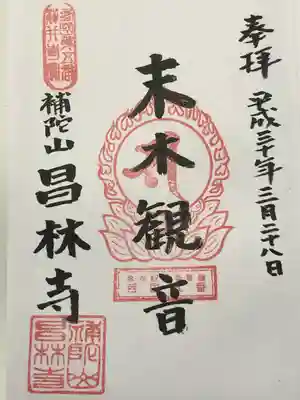 奉拝 平成三十年三月二十八日
末木観音
補陀山 昌林寺
補陀山
昌林寺